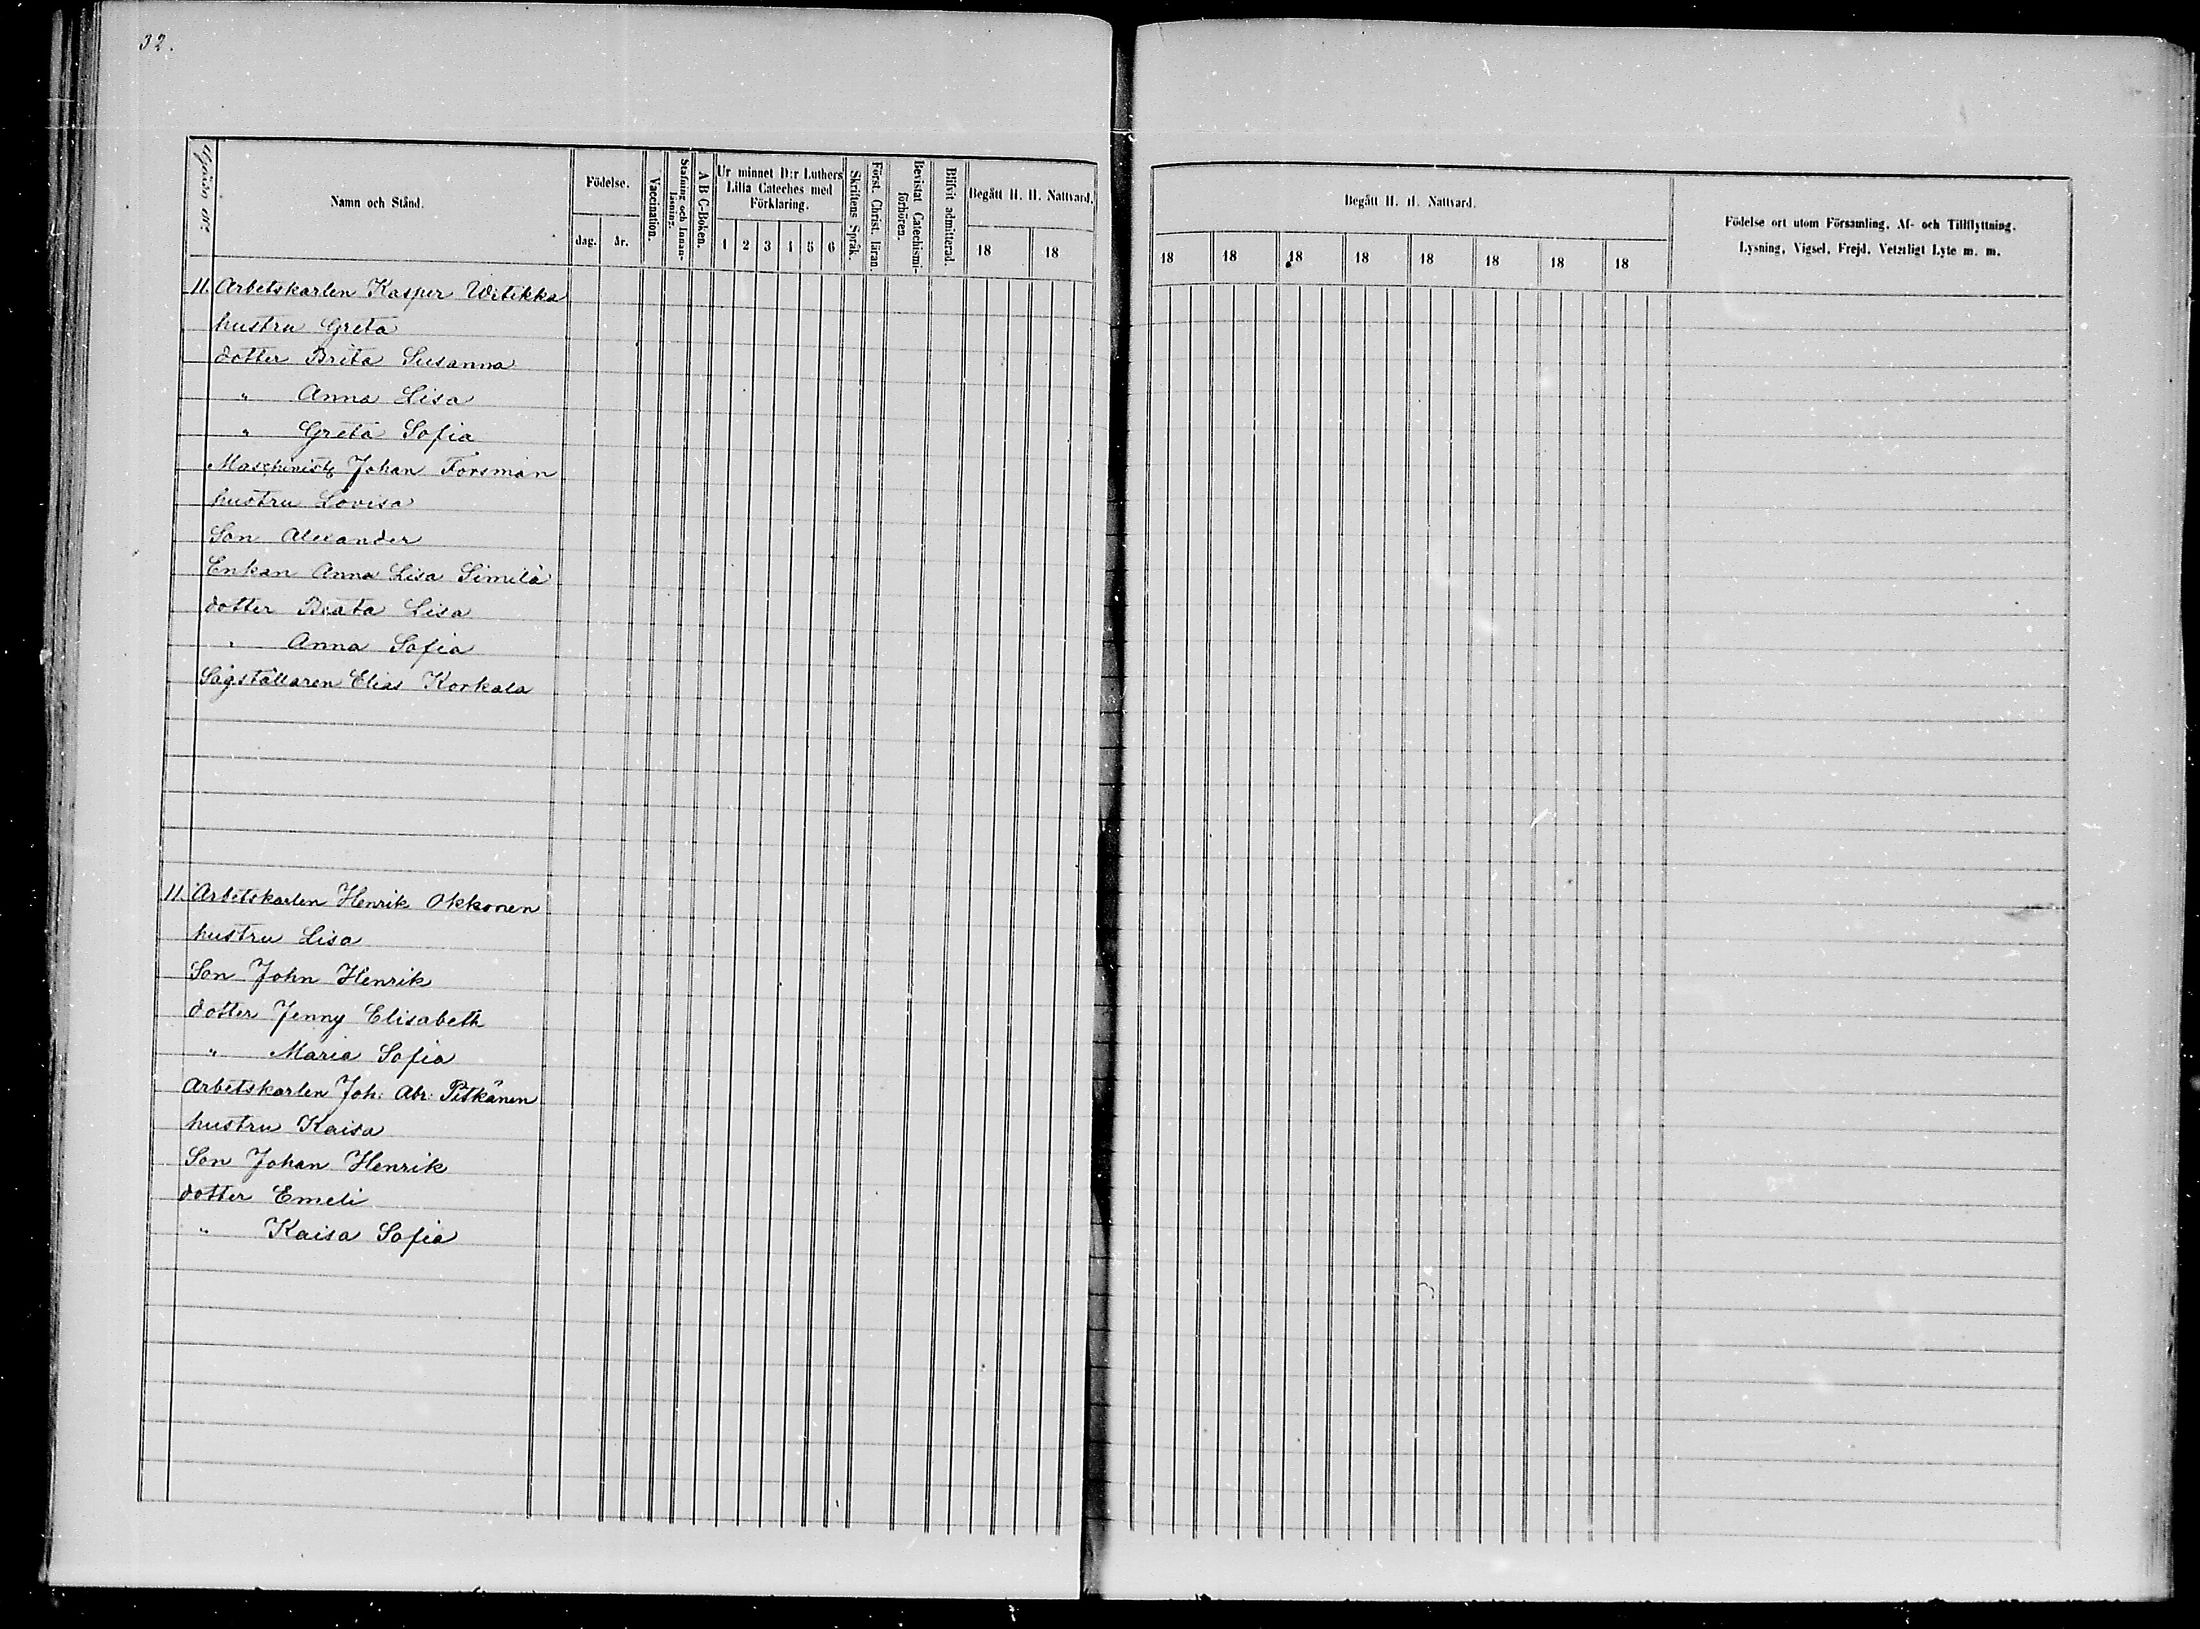 32.
Namn och Stånd.
Födelse.
dag.
år.
Vaccination.
Stafning och Innan-
läsning.
A B C-Boken.
Ur minnet D:r Luthers
Lilla Cateches med
Förklaring.
1 2 3 4 5 6
Skriftens Språk.
Först. Christ. läran.
Bevistat Catechismi-
förhören.
Blifvit admitterad.
Begått H. H. Nattvard.
18 18
Begått H. H. Nattvard.
18 18 18 18 18 18 18 18
Födelse ort utom Församling, Af- och Tillflyttning,
Lysning, Vigsel, Frejd, Veterligt Lyte m. m.
11. Arbetskarlen Kasper Witikka
hustru Greta
dotter Brita Susanna
" Anna Lisa
" Greta Sofia
Johan Forsman
hustru Lovisa
Son Alexander
Enkan Anna Lisa Similä
dotter Beata Lisa
" Anna Sofia
Sågställaren Elias Korkala
11. Arbetskarlen Henrik Okkonen
hustru Lisa
Son John Henrik
dotter Jenny Elisabeth
" Maria Sofia
Arbetskarlen Joh: Abr: Pitkänen
hustru Kaisa
Son Johan Henrik
dotter Emeli
" Kaisa Sofia